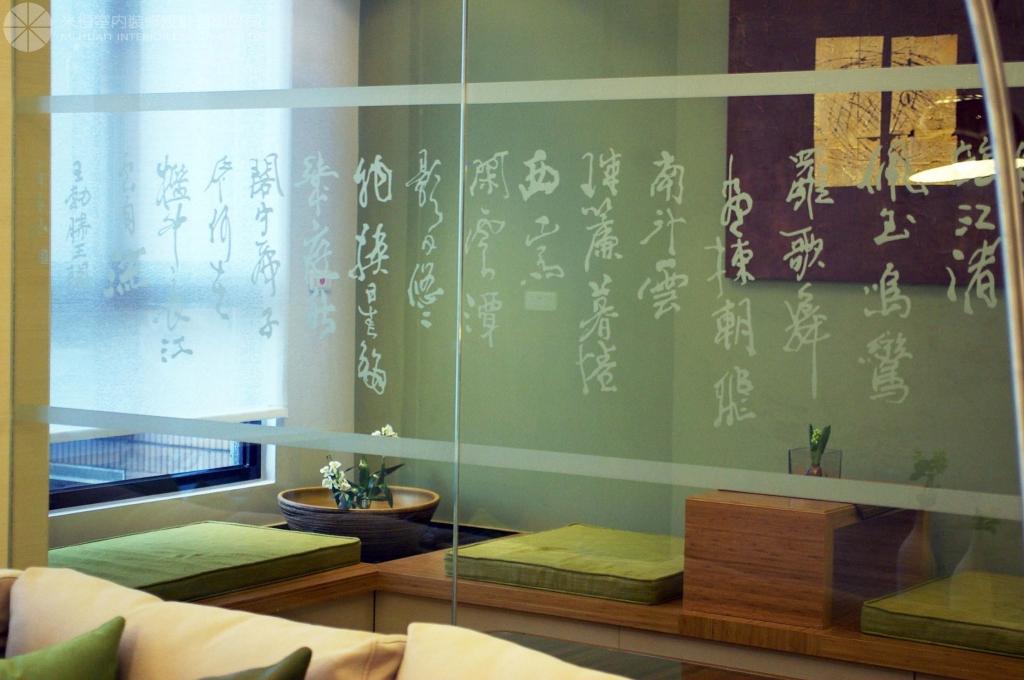 室內裝修設計有限公司
臨江渚
佩玉鳴鸞
罷歌舞
畫棟朝飛
南浦雲
珠簾暮捲
西
閑雲潭
影日悠〻
物換星移
幾度秋
閣中帝子
今何在
檻外長江
空自流
王勃滕王閣